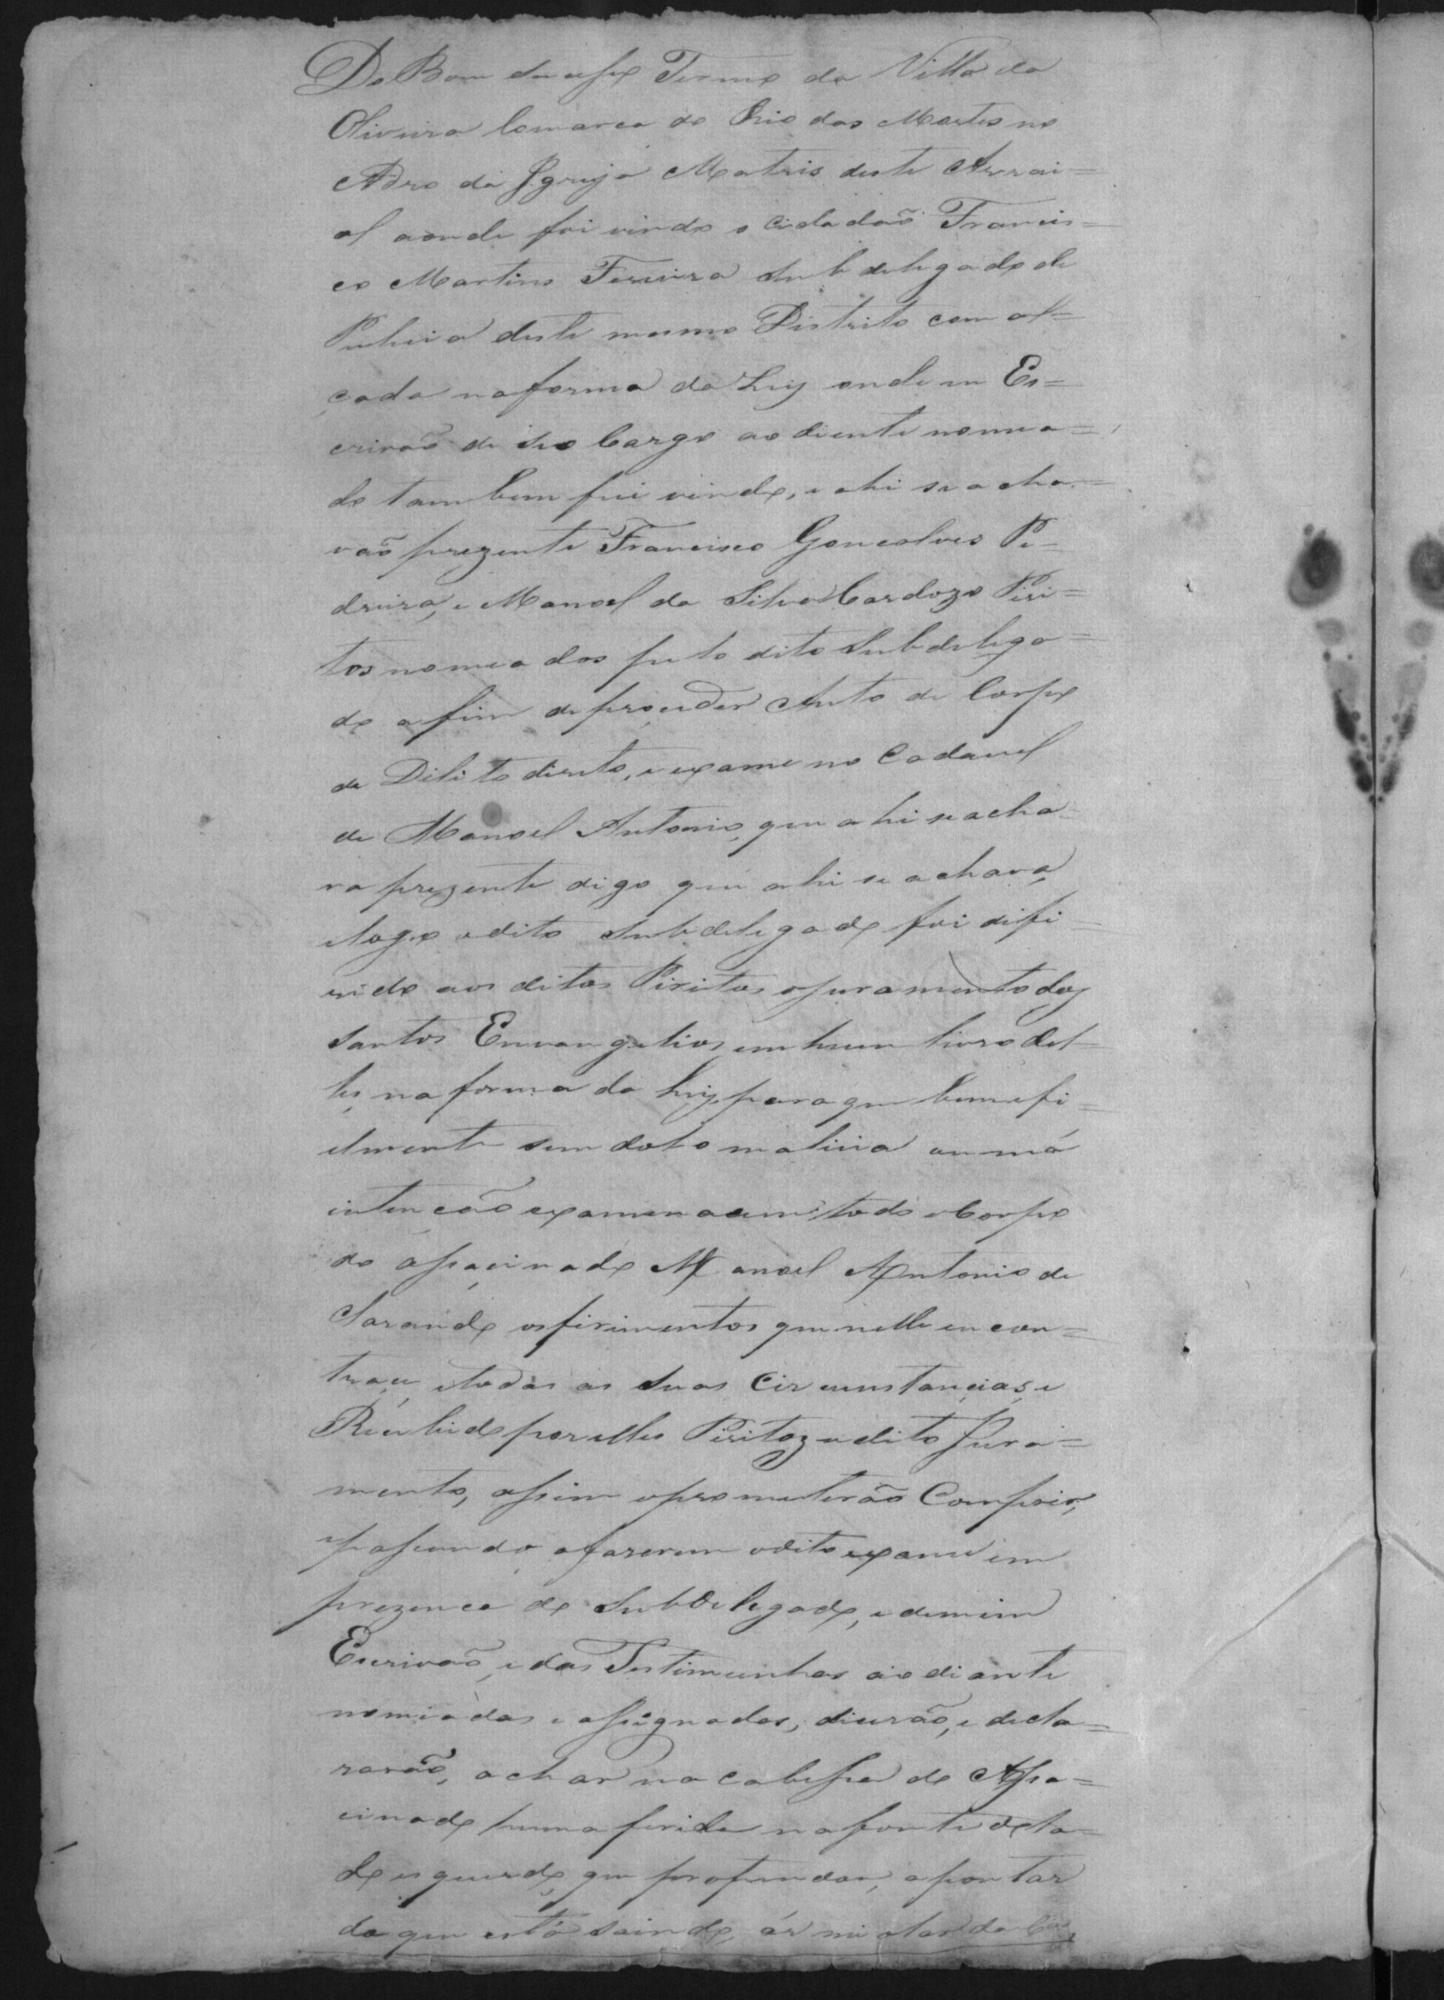 Do Bom Sucesso Termo da Villa da
Oliveira Comarca do Rio das Mortes no
Adro da Igreja Matris deste Arrai=
al aonde foi vindo o Cidadão Francis=
co Martins Ferreira Subdelegado de
Pulicia deste mesmo Distrito com al=
çada na forma da Ley onde eu Es=
crivão de seo Cargo ao diente nomea=
do tambem fui vindo, e ahi se acha=
vão prezente Francisco Goncalves Pe=
dreira, e Manoel da Silva Cardozo Piri=
tos nomeados pelo dito Subdelega=
do afim de proceder Auto de Corpo
de Dilito direto, e exame no Cadavel
de Manoel Antonio, que ahi se acha=
va prezente digo que ahi se achava,
e logo o dito Subdelegado foi difi=
rido aos ditos Piritos o juramento dos
Santos Envangelios em hum livro del=
les na forma da Ley, para que bem e fi=
elmente sem dolo malicia ou má
intenção examinacem todo o Corpo
do assacinado Manoel Antonio de
 os firimentos que nelle encon=
trace, e todas as suas Circunstancias, e
Recebido por elles Piritoz o dito Jura=
mento, assim o prometerão Comprir,
e passando a fazerem o dito exame em
prezenca do Subdelegado, e de mim
Escrivão, e das Testimunhas ao diante
nomiadas e assignadas, dicerão, e decla=
rarão, achar na cabessa do Assa=
cinado huma ferida na fonte do la=
do esquerdo que profundou, apontar
do que está saindo,